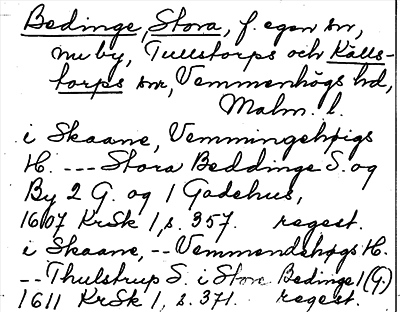 Bedinge, Stora, f. egen sn,
nu by, Tullstorps och Källs-
torps sn, Vemmenhögs hd,
Malm. l.
i Skaane, Vemmingehøigs
H. --- Stora Beddinge S. og
By 2 G. og 1 Gadehus,
1607 KrSk 1, s. 357. regest.
i Skaane, -- Vemmendehøgs H.
-- Thulstrup S. i Store Bedinge 1 (G.)
1611 KrSk 1, s. 371. regest.